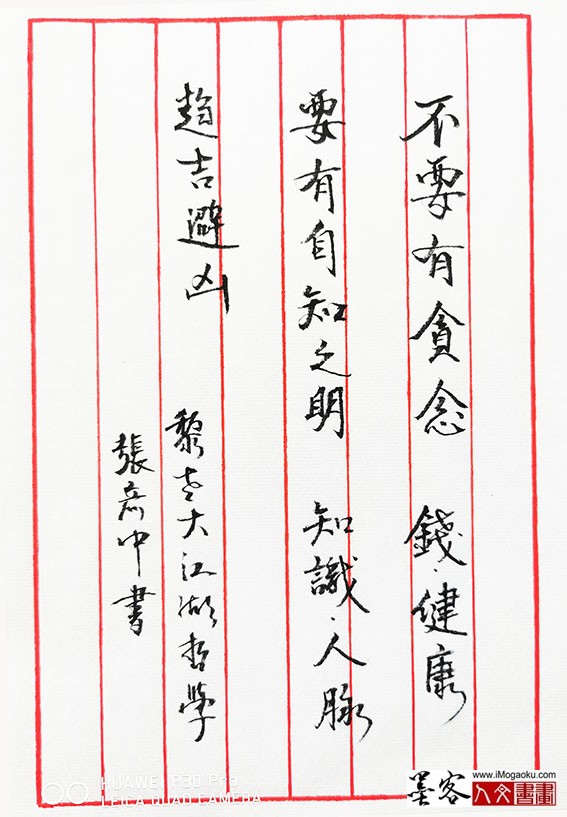 不要有貪念 錢、健康
要有自知之明 知識、人脉
趨吉避凶
黎老大江湖哲學
張彥中書
墨客
www.iMogaoku.com
人文書畫
HUAWEI P30 Pro
LEICA QUAD CAMERA